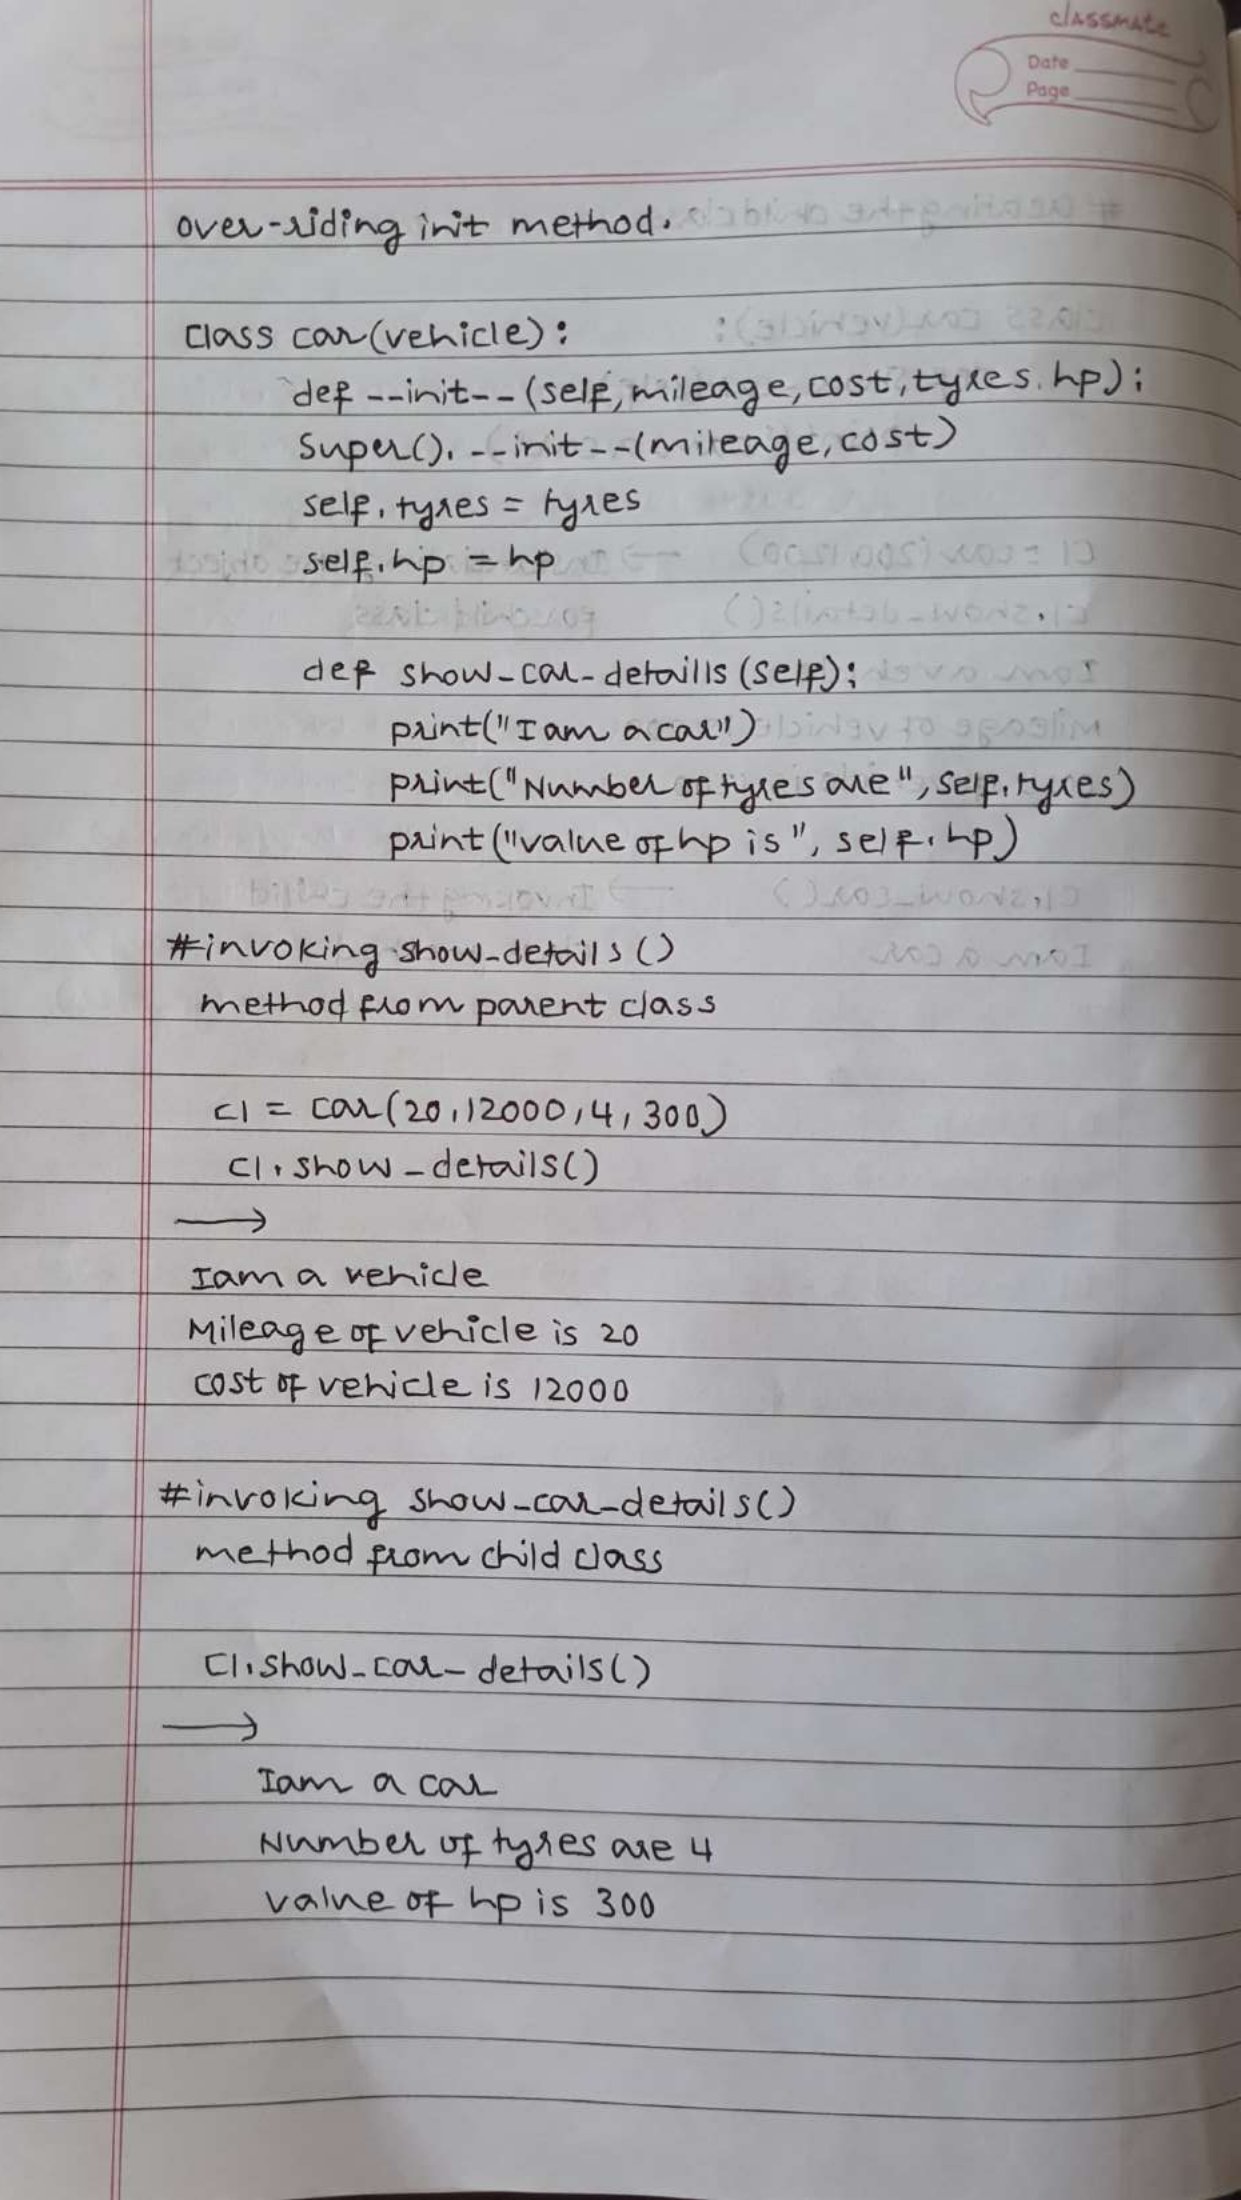 classmate
Date
Page
over-riding init method.
class car(vehicle):
def --init-- (self, mileage, cost, tyres, hp):
Super(). --init--(mileage, cost)
self.tyres = tyres
self.hp = hp
def show-car-detaills (self):
print("I am a car")
print("Number of tyres are", self.tyres)
print("value of hp is", self.hp)
#invoking show-details()
method from parent class
c1 = car(20,12000,4,300)
c1.show-details()
→
I am a vehicle
Mileage of vehicle is 20
cost of vehicle is 12000
#invoking show-car-details()
method from child class
C1.show-car-details()
→
I am a car
Number of tyres are 4
value of hp is 300